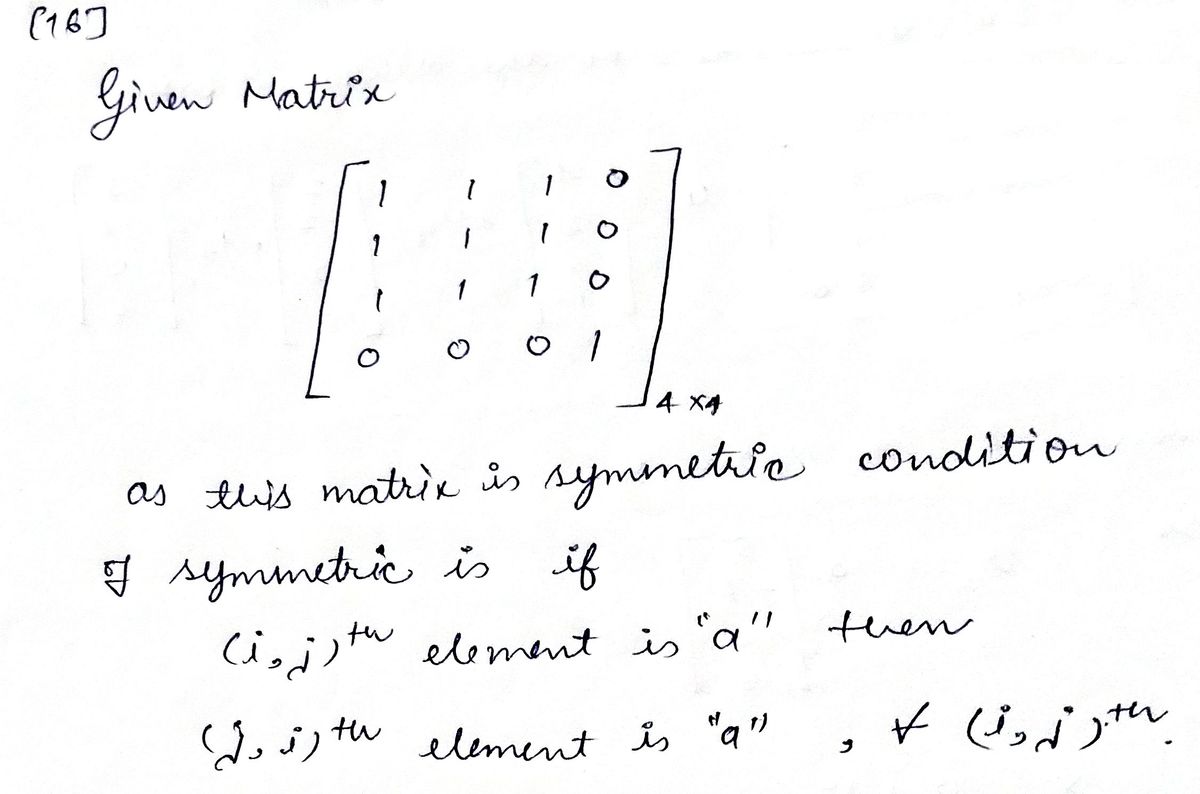 [16]
Given Matrix
1 1 1 0
1 1 1 0
1 1 1 0
0 0 0 1
4 x4
as this matrix is symmetric condition
of symmetric is if
(i,j)th element is "a" then
(j,i)th element is "a" , ∀ (i,j)th.